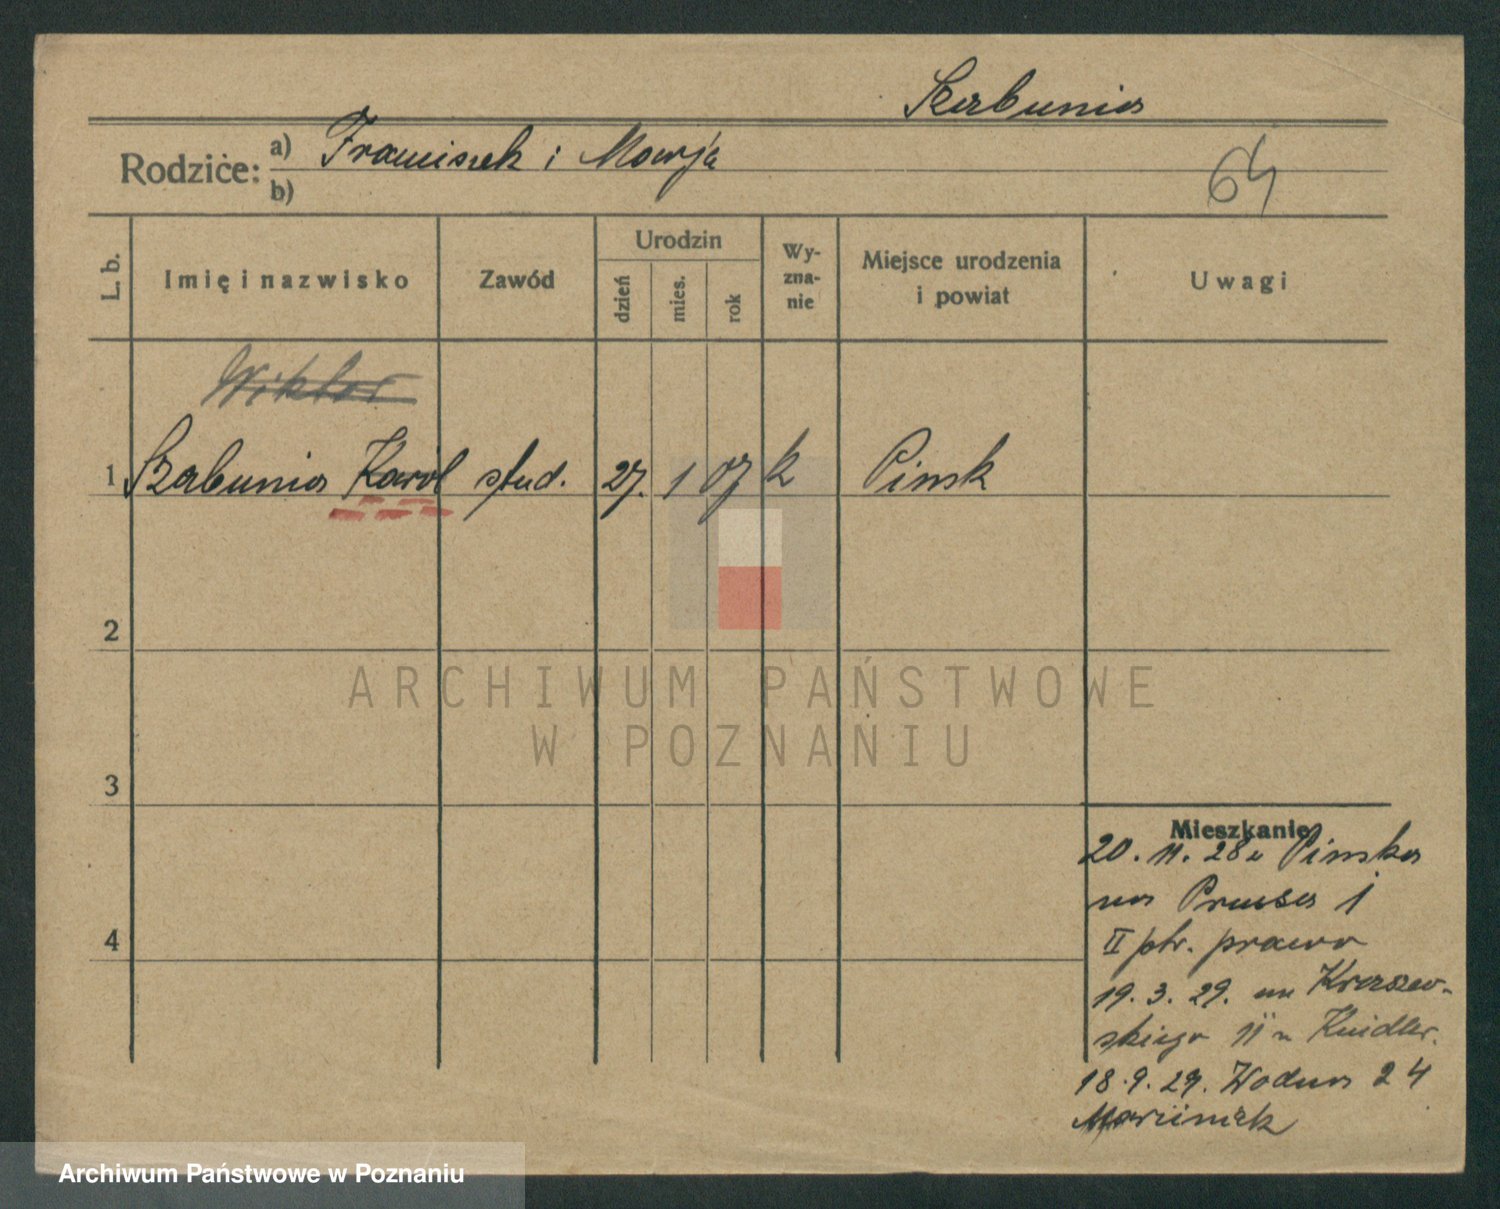 Szabunia
Rodzice: a) Franciszek i Marja
b)
64
L. b.
Imię i nazwisko
Zawód
Urodzin
dzień
mies.
rok
Wy-
zna-
nie
Miejsce urodzenia
i powiat
Uwagi
Wiktor
1 Szabunia Karol stud. 27. 1 07 k Pinsk
2
3
4
Mieszkanie
20. 11. 28 z Pinska
na Prusa 1
II ptr. prawo
19. 3. 29. Kraszew-
skiego 11
18. 9. 29. Wodna 24
ARCHIWUM PAŃSTWOWE
W POZNANIU
Archiwum Państwowe w Poznaniu